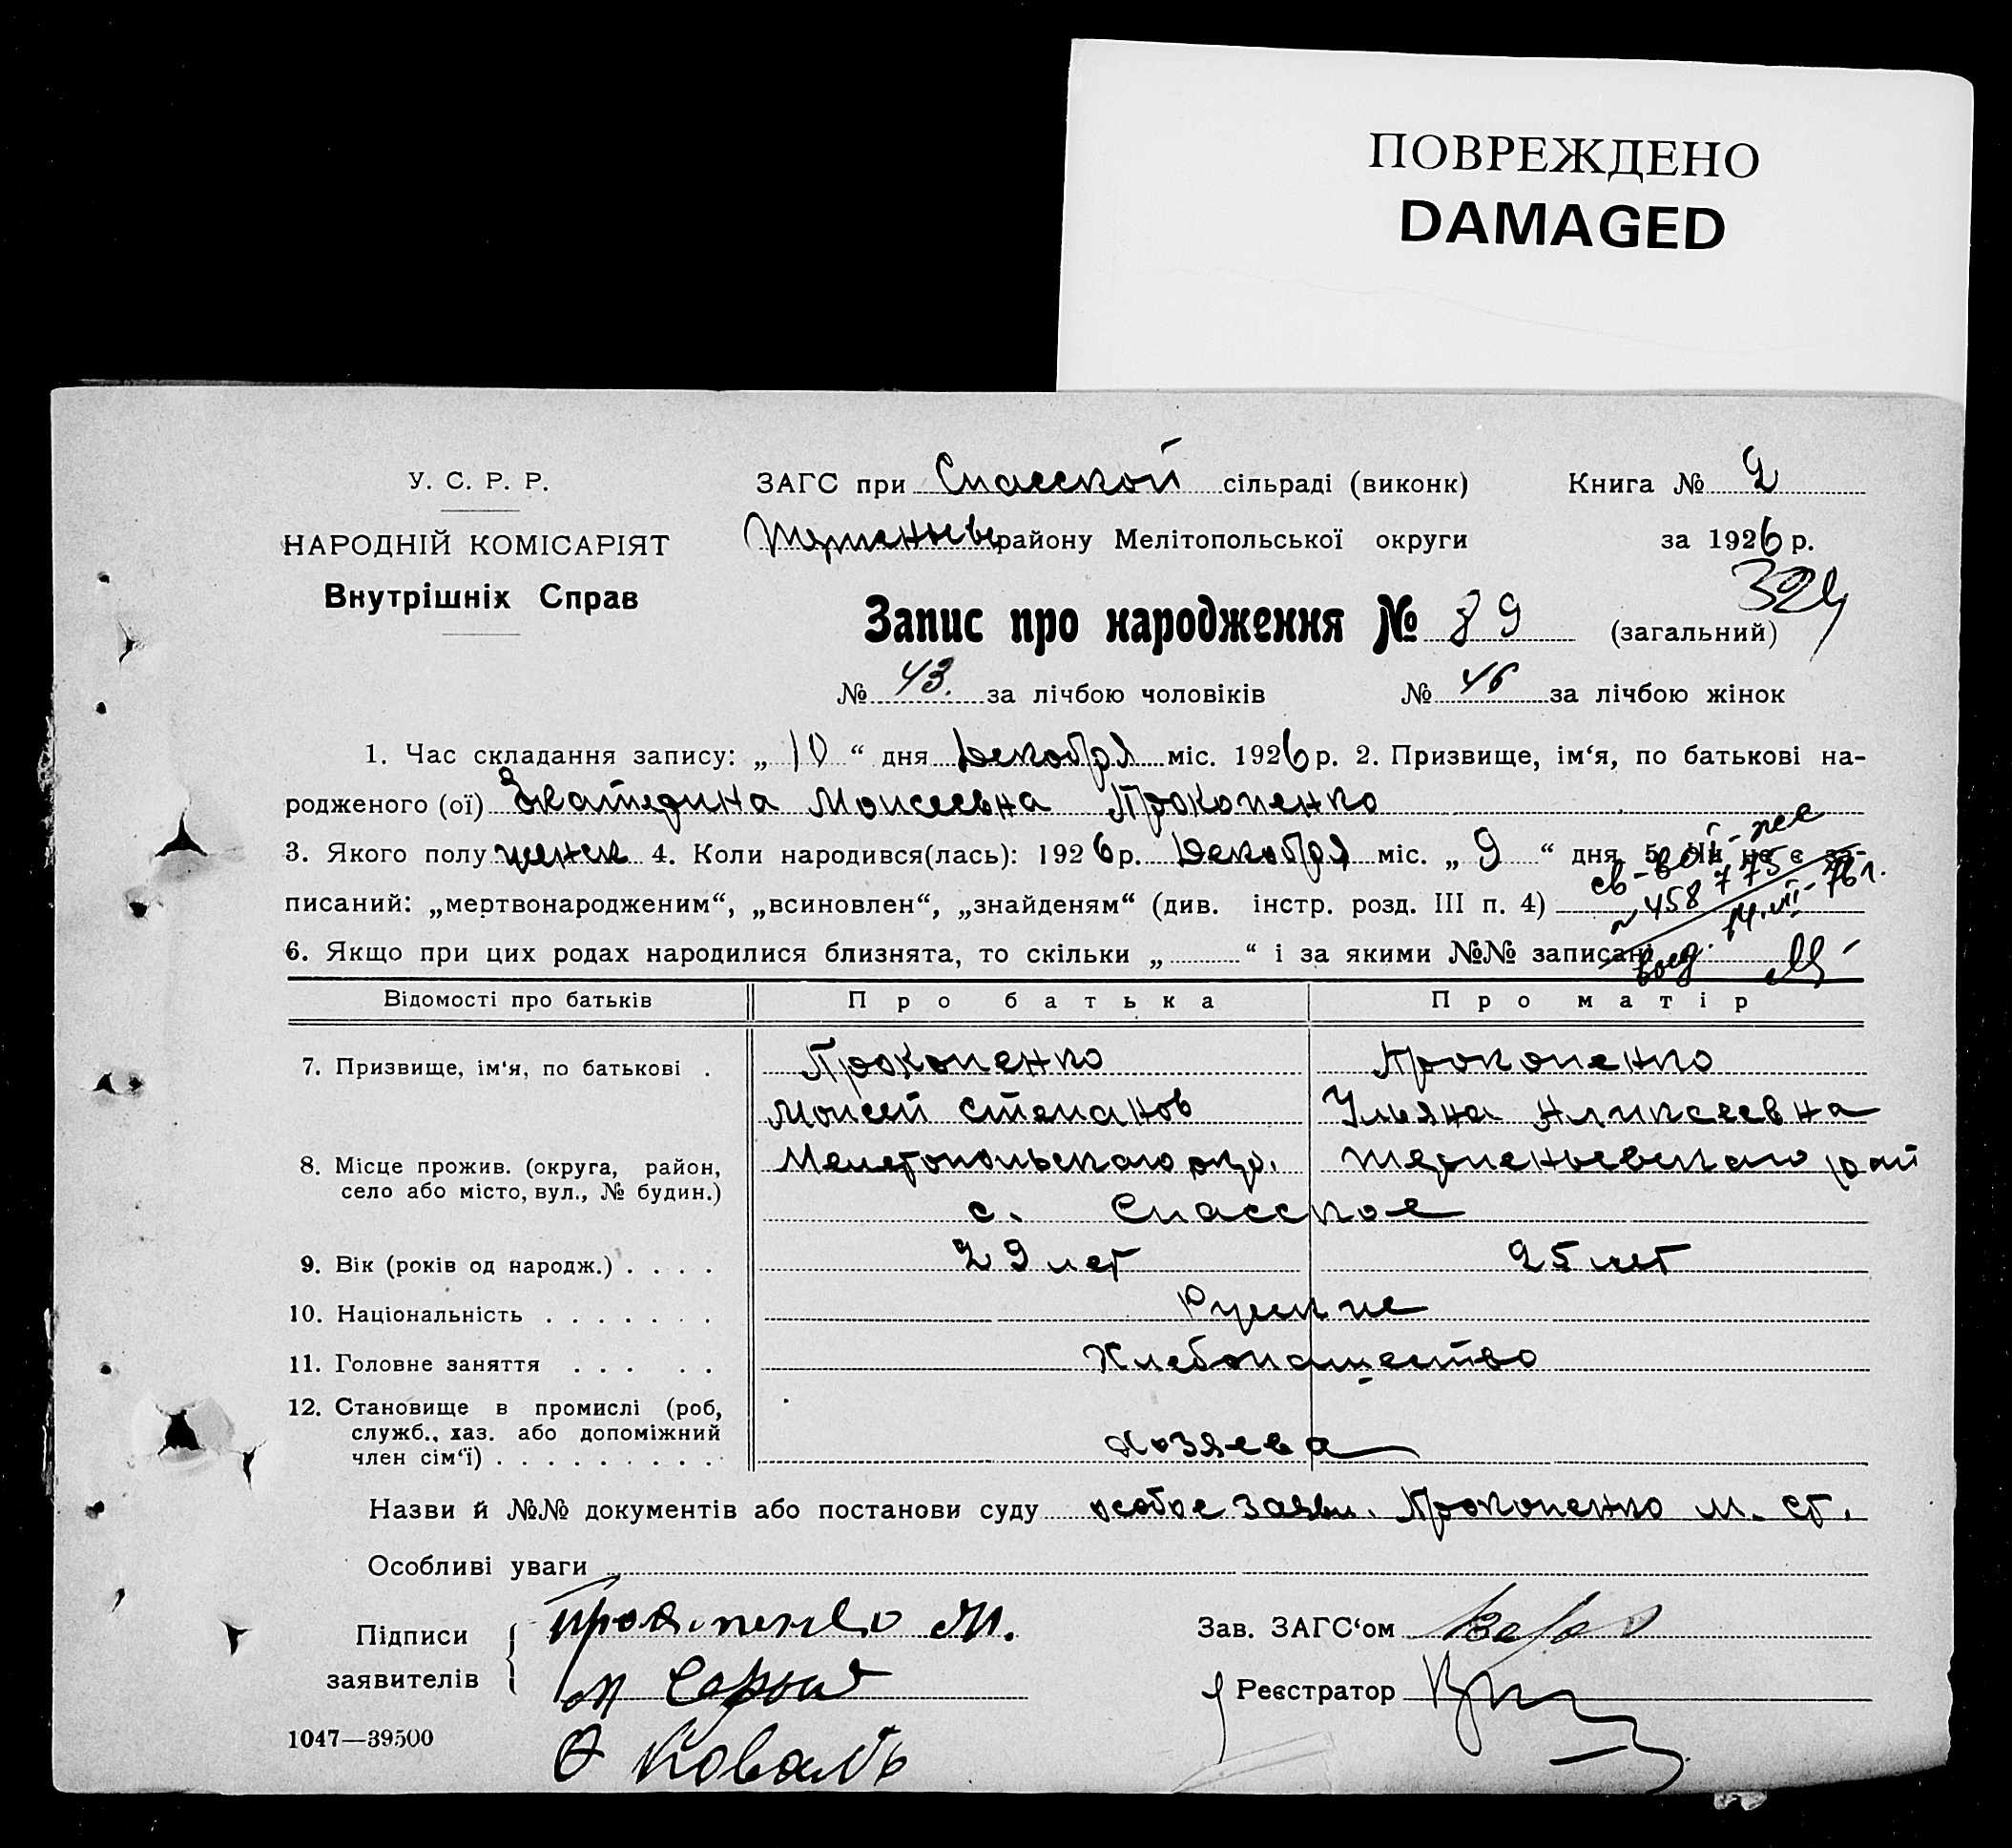 ПОВРЕЖДЕНО
DAMAGED
У. С. Р. Р.
НАРОДНІЙ КОМІСАРІЯТ
Внутрішніх Справ
ЗАГС при Спасской сільраді (виконк) Книга № 2
Терпеньев району Мелітопольської округи за 1926 р.
324
Запис про народження № 89 (загальний)
№ 43. за лічбою чоловіків № 46 за лічбою жінок
1. Час складання запису: „ 10 “ дня Декабря міс. 1926 р. 2. Призвище, ім‘я, по батькові на-
родженого (ої) Екатерина Моисеевна Прокопенко
3. Якого полу женск 4. Коли народився(лась): 1926 р. Декабря міс. „ 9 “ дня 5. Чи не є за-
писаний: „мертвонародженим“, „всиновлен“, „знайденям“ (див. інстр. розд. III п. 4)
св-во
№ 458775
14.VII-76 г.
6. Якщо при цих родах народилися близнята, то скільки „ “ і за якими №№ записані
Відомості про батьків Про батька Про матір
7. Призвище, ім‘я, по батькові . Прокопенко Прокопенко
Моисей Степанов Ульяна Аликсеевна
8. Місце прожив. (округа, район, село або місто, вул., № будин.) Мелетопольскаго окр. Терпеньевскаго рай
с. Спасское
9. Вік (років од народж.) . . . . 29 лет 25 лет
10. Національність . . . . . . . Руские
11. Головне заняття . . . . . Хлебопащество
12. Становище в промислі (роб, служб., хаз. або допоміжний член сім‘ї) . . . . . . . . . Хозяева
Назви й №№ документів або постанови суду особое заявл. Прокопенко М. Ст.
Особливі уваги
Підписи заявителів Прокопенко М.
Зав. ЗАГС‘ом
Реєстратор
Коваль
1047—39500